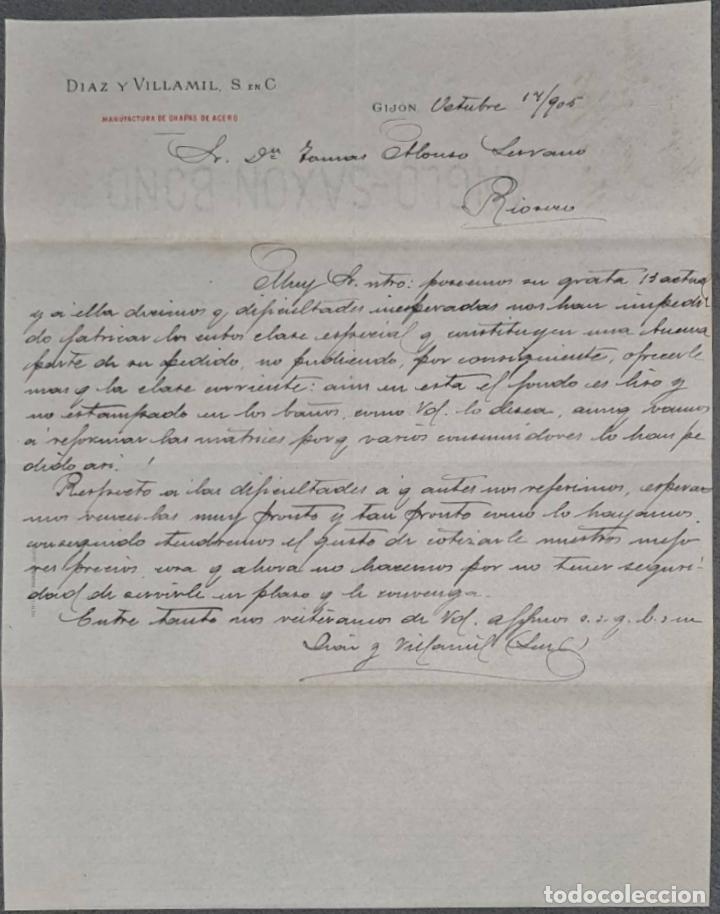 DIAZ Y VILLAMIL, S. EN C.
MANUFACTURA DE GRAPAS DE ACERO
GIJON, Octubre 17/905
Sr. Dn Tomas Alonso Serrano
ANGLO-SAXON BOND
Rioseco
Muy Sr. ntro: poseemos su grata 13 actual
y a ella decimos q dificultades inesperadas nos han impedi
do fabricar los cubos clase especial q constituyen una buena
parte de su pedido, no pudiendo, por consiguiente, ofrecerle
mas q la clase corriente: aun en esta el fondo es liso y
no estampado en los baños, como Vd. lo desea, aunq vamos
a reformar las matrices porq varios consumidores lo han pe
dido asi.
Respecto a las dificultades a q antes nos referimos, espera
mos vencerlas muy pronto y tan pronto como lo hayamos
conseguido tendremos el gusto de cotizarle nuestros mejo
res precios cosa q ahora no hacemos por no tener seguri-
dad de servirle en plazo q le convenga.
Entre tanto nos reiteramos de Vd. affmos s. s. q. b. s. m
Diaz y Villamil (S en C)
todocoleccion